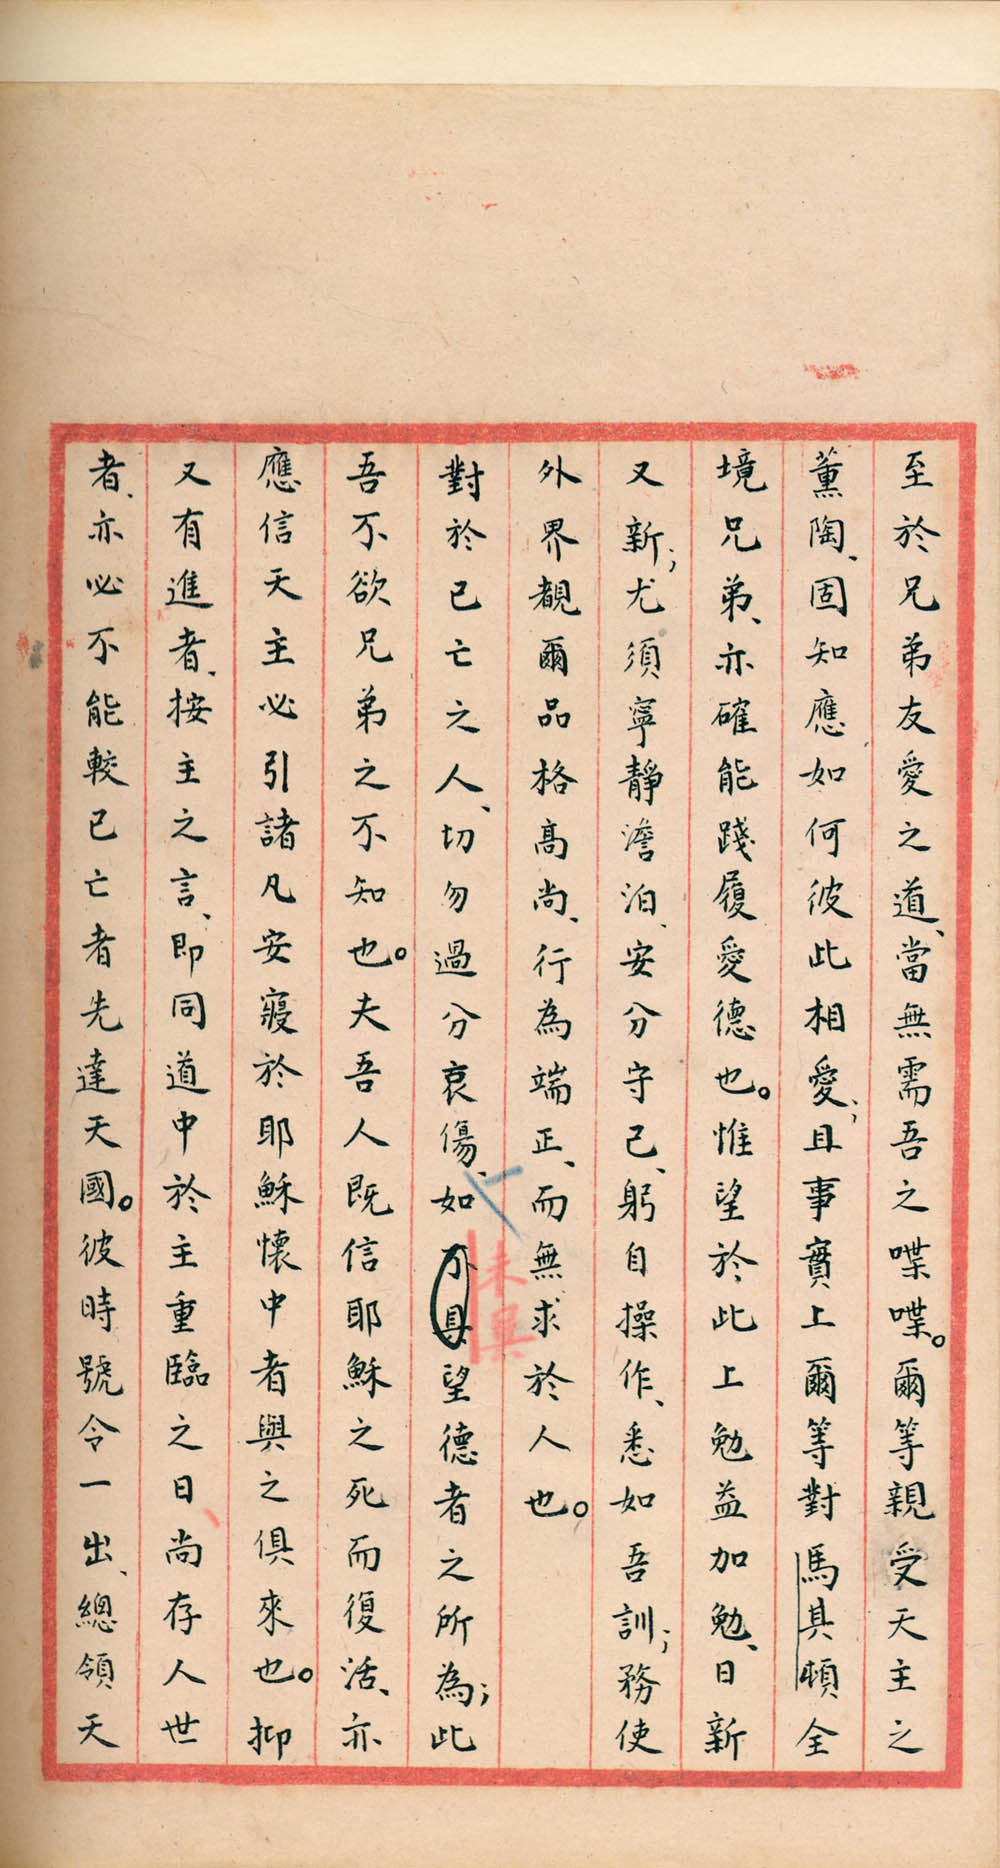 至於兄弟友愛之道、當無需吾之喋喋。爾等親受天主之
薰陶、固知應如何彼此相愛；且事實上爾等對馬其頓全
境兄弟、亦確能踐履愛德也。惟望於此上勉益加勉、日新
又新；尤須寧靜澹泊、安分守己、躬自操作、悉如吾訓；務使
外界覩爾品格高尚、行為端正、而無求於人也。
對於已亡之人、切勿過分哀傷、如不具望德者之所為；此
未與
吾不欲兄弟之不知也。夫吾人既信耶穌之死而復活、亦
應信天主必引諸凡安寢於耶穌懷中者與之俱來也。抑
又有進者、按主之言、即同道中於主重臨之日尚存人世
者、亦必不能較已亡者先達天國。彼時號令一出、總領天